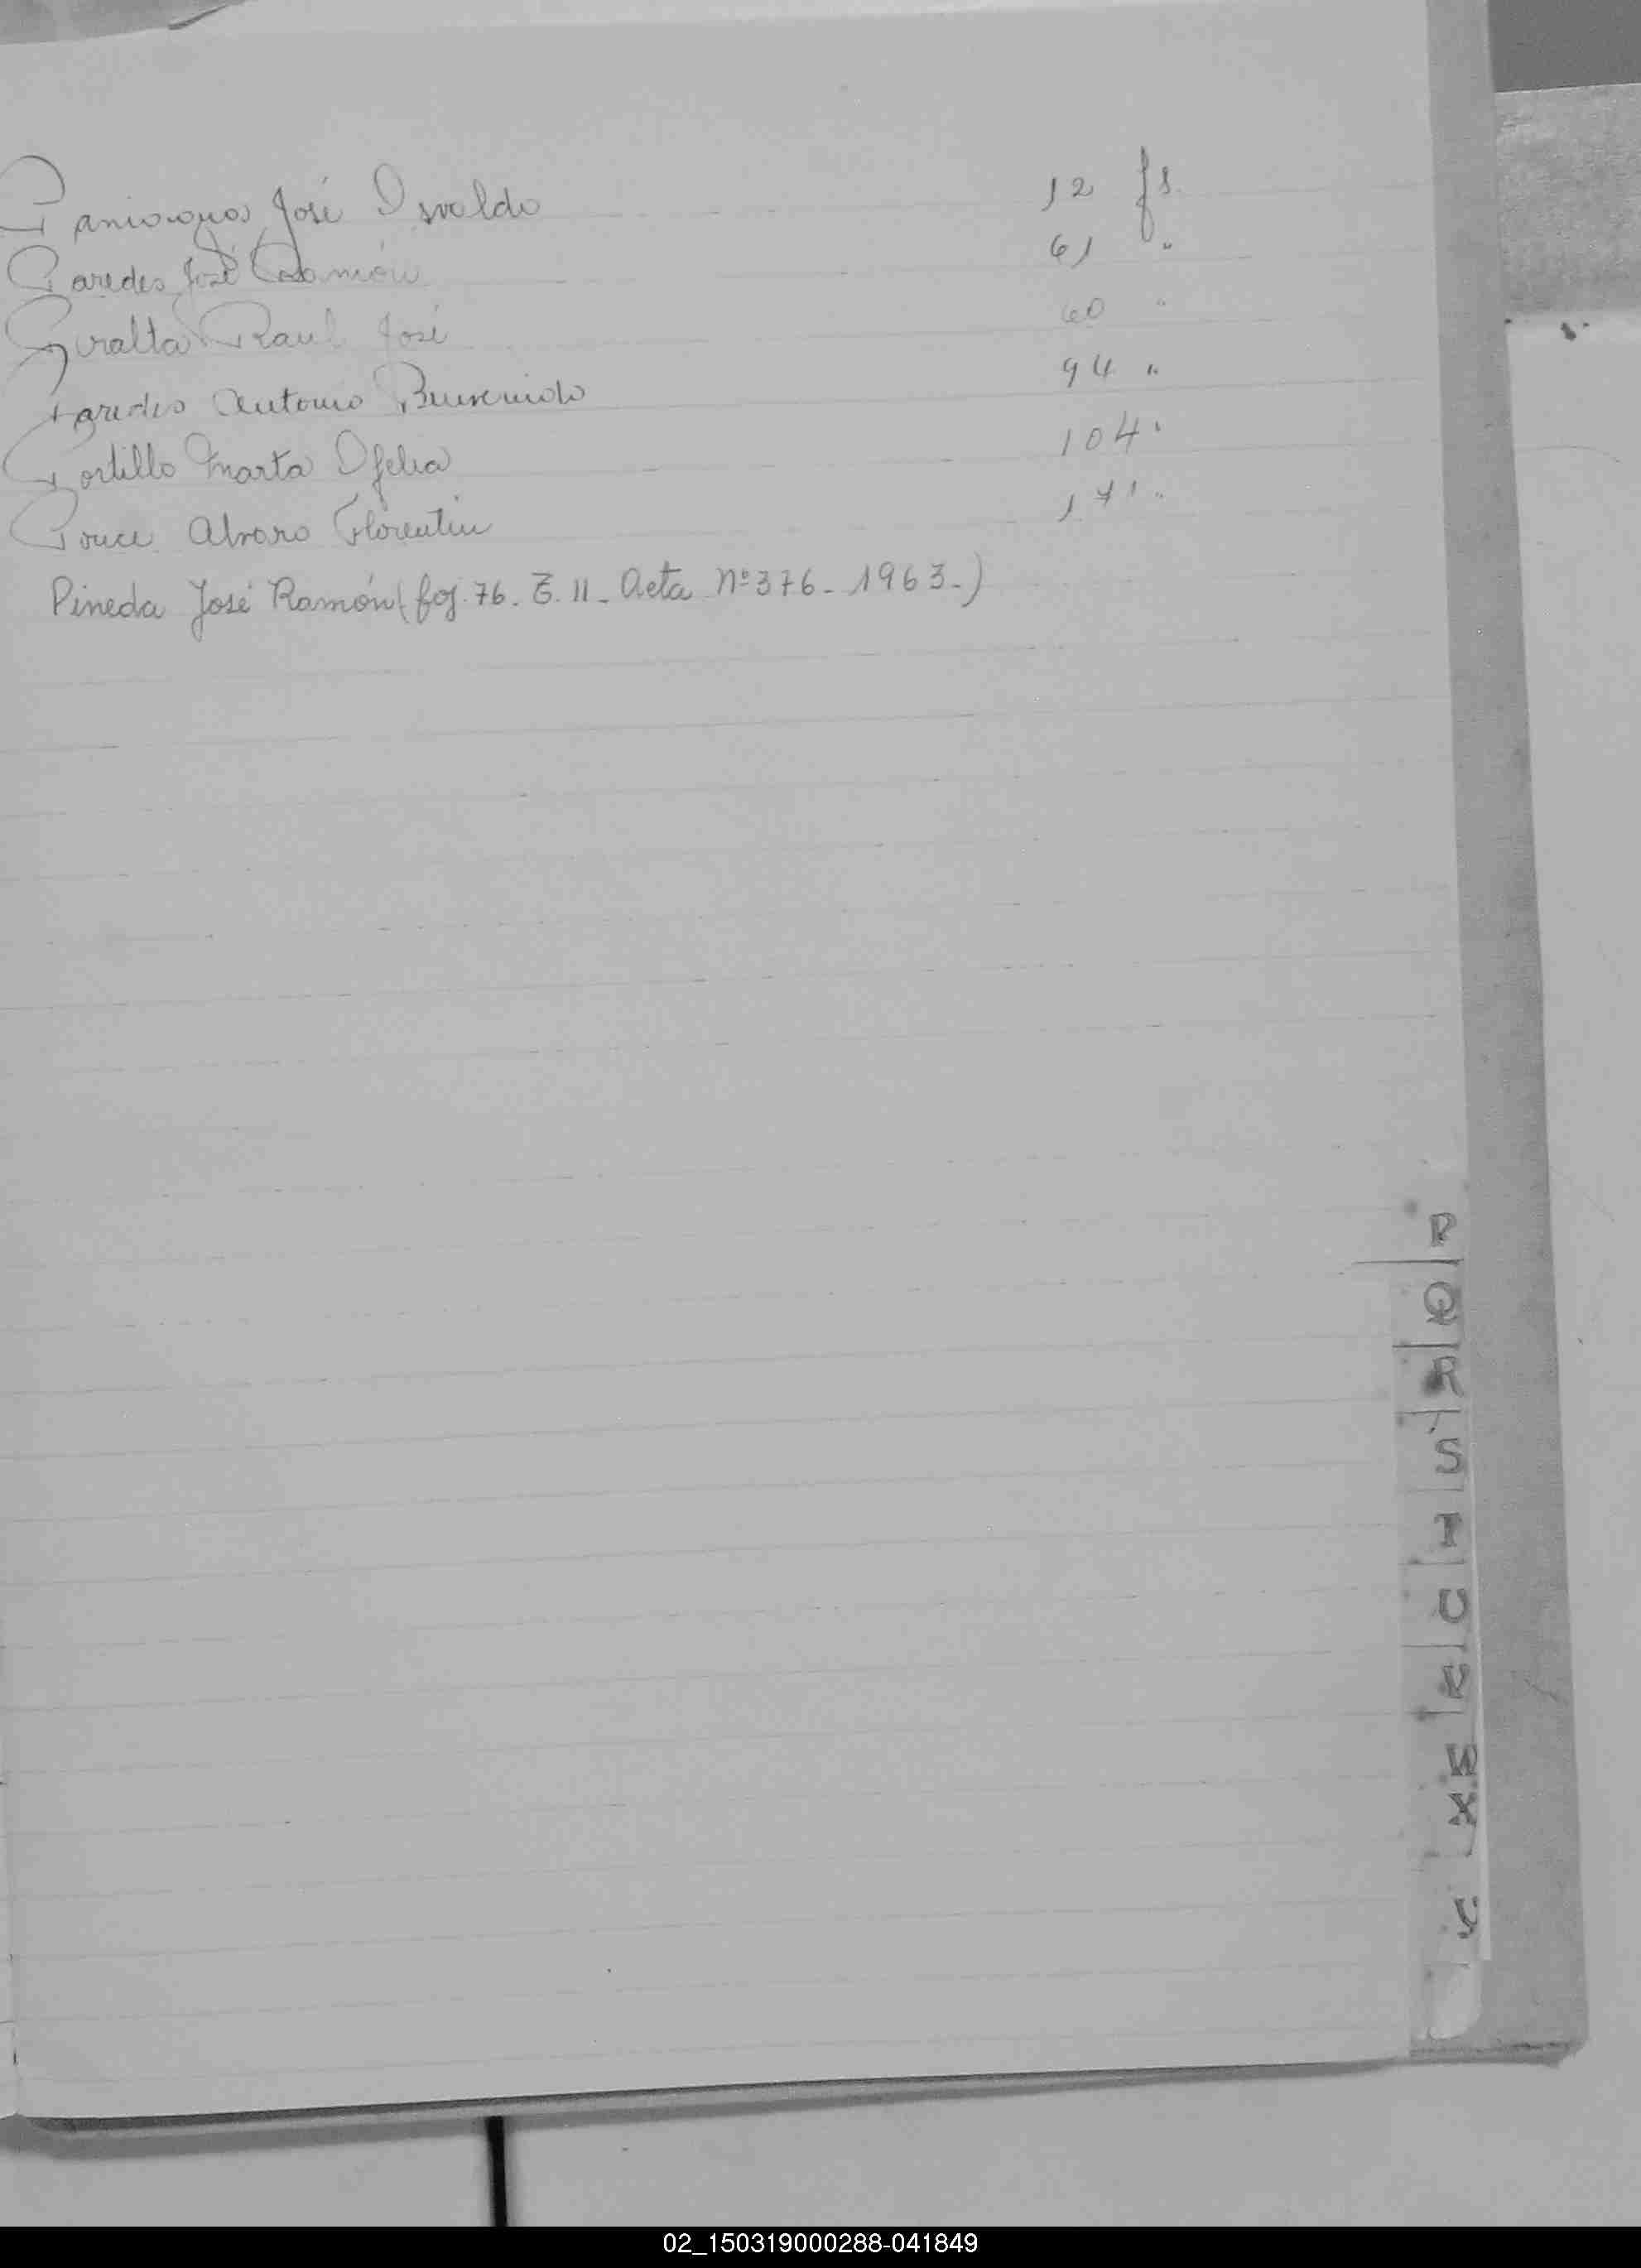 Paniagua José Osvaldo 12 fs.
Paredes José Ramón 61 "
Peralta Raul José 60 "
Paredes Antonio Bienvenido 94 "
Portillo Marta Ofelia 104 "
Ponce Alvaro Florentin 171 "
Pineda José Ramón (foj. 76. T. II - Acta Nº 376 - 1963-)
P
Q
R
S
T
U
V
W
X
02_150319000288-041849